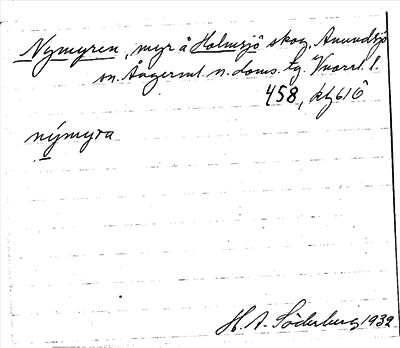 Nymyren, myr å Holmsjö skog, Anundsjö
sn. Ångerml. n. doms. tg. Vnorrl. l.
458, kf 616
nýmyra
H. A. Söderberg 1932